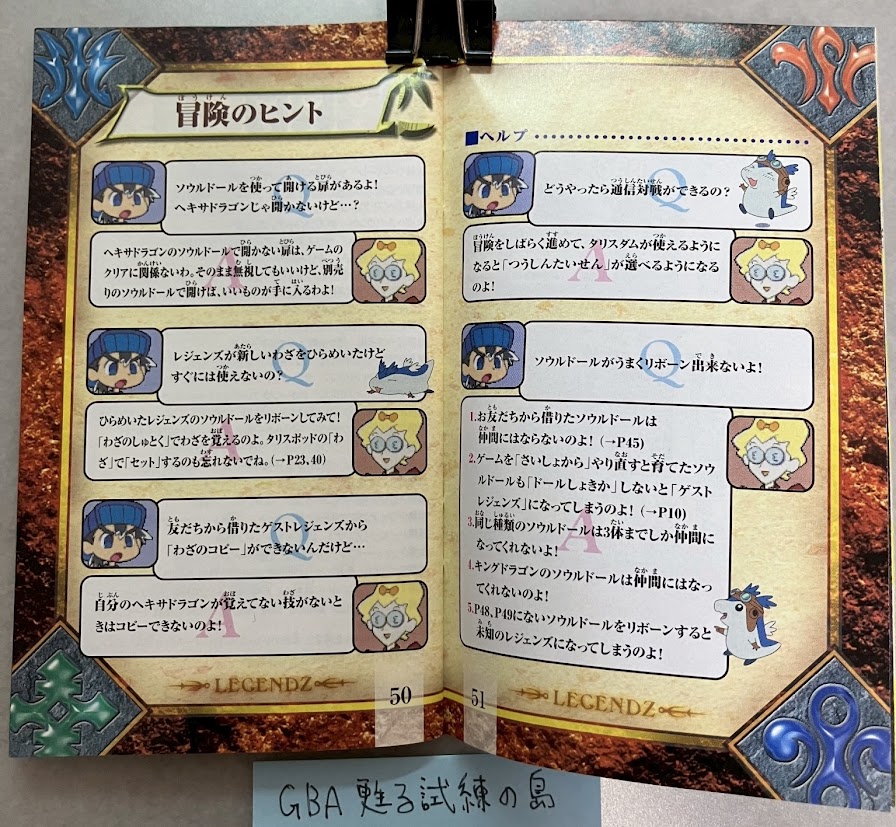 冒険のヒント
ソウルドールを使って開ける扉があるよ！
ヘキサドラゴンじゃ開かないけど…？
ヘキサドラゴンのソウルドールで開かない扉は、ゲームの
クリアに関係ないわ。そのまま無視してもいいけど、別売
りのソウルドールで開けば、いいものが手に入るわよ！
レジェンズが新しいわざをひらめいたけど
すぐには使えないの？
ひらめいたレジェンズのソウルドールをリボーンしてみて！
「わざのしゅとく」でわざを覚えるのよ。タリスポッドの「わ
ざ」で「セット」するのも忘れないでね。（→P23,40）
友だちから借りたゲストレジェンズから
「わざのコピー」ができないんだけど…
自分のヘキサドラゴンが覚えてない技がないと
きはコピーできないのよ！
LEGENDZ
50
■ヘルプ
どうやったら通信対戦ができるの？
冒険をしばらく進めて、タリスダムが使えるように
なると「つうしんたいせん」が選べるようになる
のよ！
ソウルドールがうまくリボーン出来ないよ！
1.お友だちから借りたソウルドールは
仲間にはならないのよ！（→P45）
2.ゲームを「さいしょから」やり直すと育てたソウ
ルドールも「ドールしょきか」しないと「ゲスト
レジェンズ」になってしまうのよ！（→P10）
3.同じ種類のソウルドールは3体までしか仲間に
なってくれないよ！
4.キングドラゴンのソウルドールは仲間にはなっ
てくれないのよ！
5.P48、P49にないソウルドールをリボーンすると
未知のレジェンズになってしまうのよ！
LEGENDZ
51
GBA 甦る試練の島